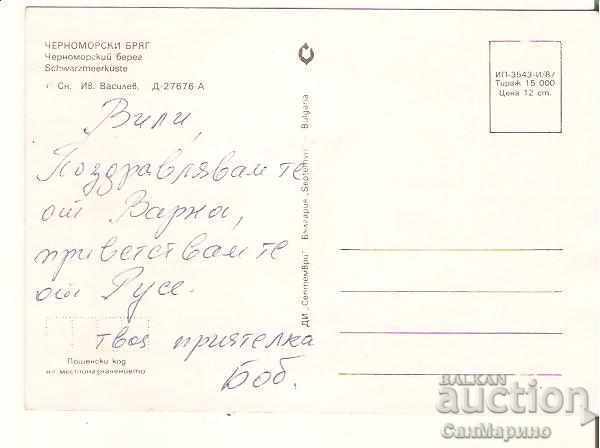 ЧЕРНОМОРСКИ БРЯГ
Черноморский берег
Schwarzmeerküste
Сн. Ив. Василев, Д-27676 А
Вили,
Поздравлявам те
от Варна,
приветствам те
от Русе.
твоя приятелка
Боб.
Пощенски код
на местоназначението
ДИ „Септември“ България „Septemvri“ Bulgaria
ИП-3543-И/87
Тираж 15 000
Цена 12 ст.
BALKAN
auction
СанМарино